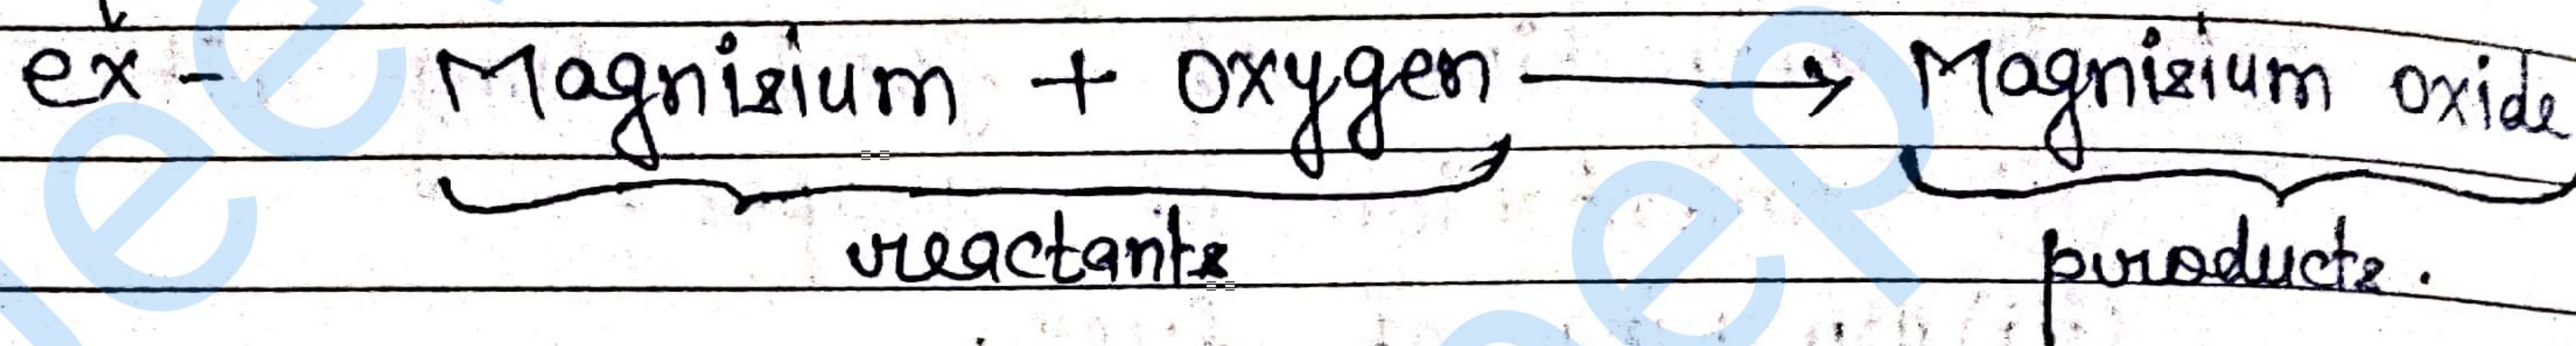 ex - Magnisium + Oxygen → Magnisium oxide
reactants products.